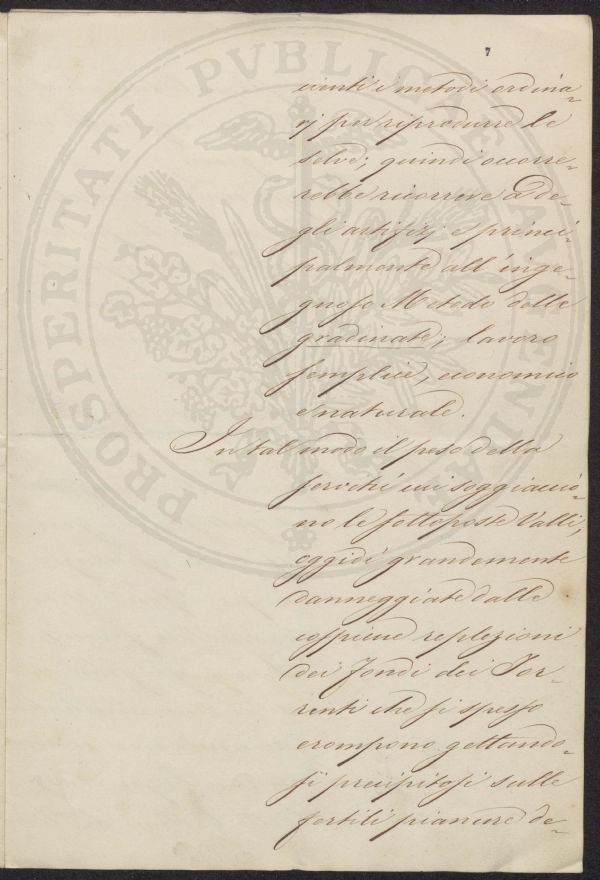 7
cienti i metodi ordina=
rj per riprodurre le
selve; quindi occorre=
rebbe ricorrere a de=
gli artifizj e princi=
palmente all'inge=
gnoso Metodo delle
gradinate; lavoro
semplice, economico
e naturale.
In tal modo il peso della
cui soggiaccio=
no le sottoposte Valli,
oggidì grandemente
danneggiate dalle
copiose replezioni
dei fondi dei Tor=
renti che sì spesso
erompono gettando=
si precipitosi sulle
fertili pianure de=
PROSPERITATI PVBLICAE AVGENDAE